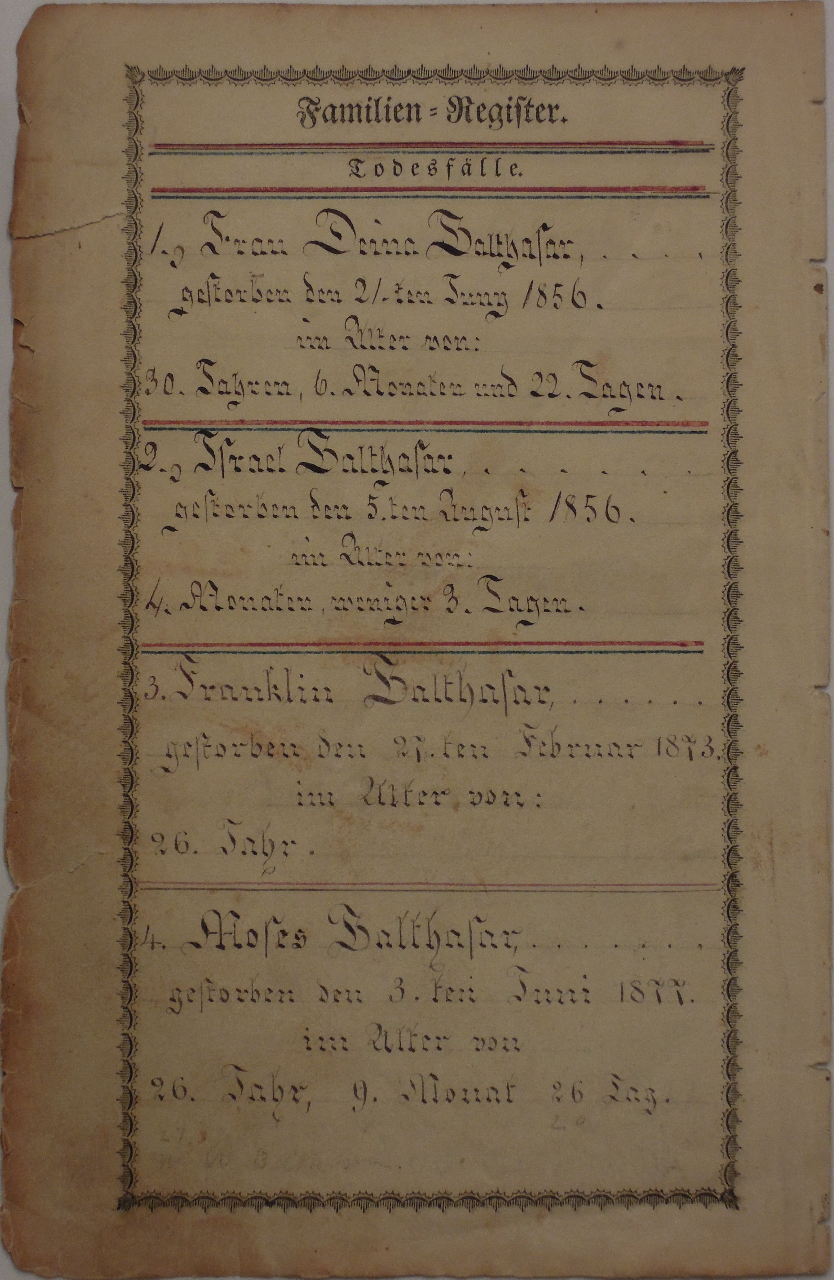 Familien-Register.
Todesfälle.
1., Frau Deina Balthasar, . . . .
gestorben den 21.ten Juny 1856.
im Alter von:
30. Jahren, 6. Monaten und 22. Tagen.
2., Israel Balthasar, . . . . . .
gestorben den 5.ten August 1856.
im Alter von:
4. Monaten, weniger 3. Tagen.
3. Franklin Balthasar, . . . . . .
gestorben den 27.ten Februar 1873.
im Alter von:
26. Jahr.
4. Moses Balthasar, . . . . . . .
gestorben den 3.ten Juni 1877.
im Alter von
26. Jahr, 9. Monat 26 Tag.